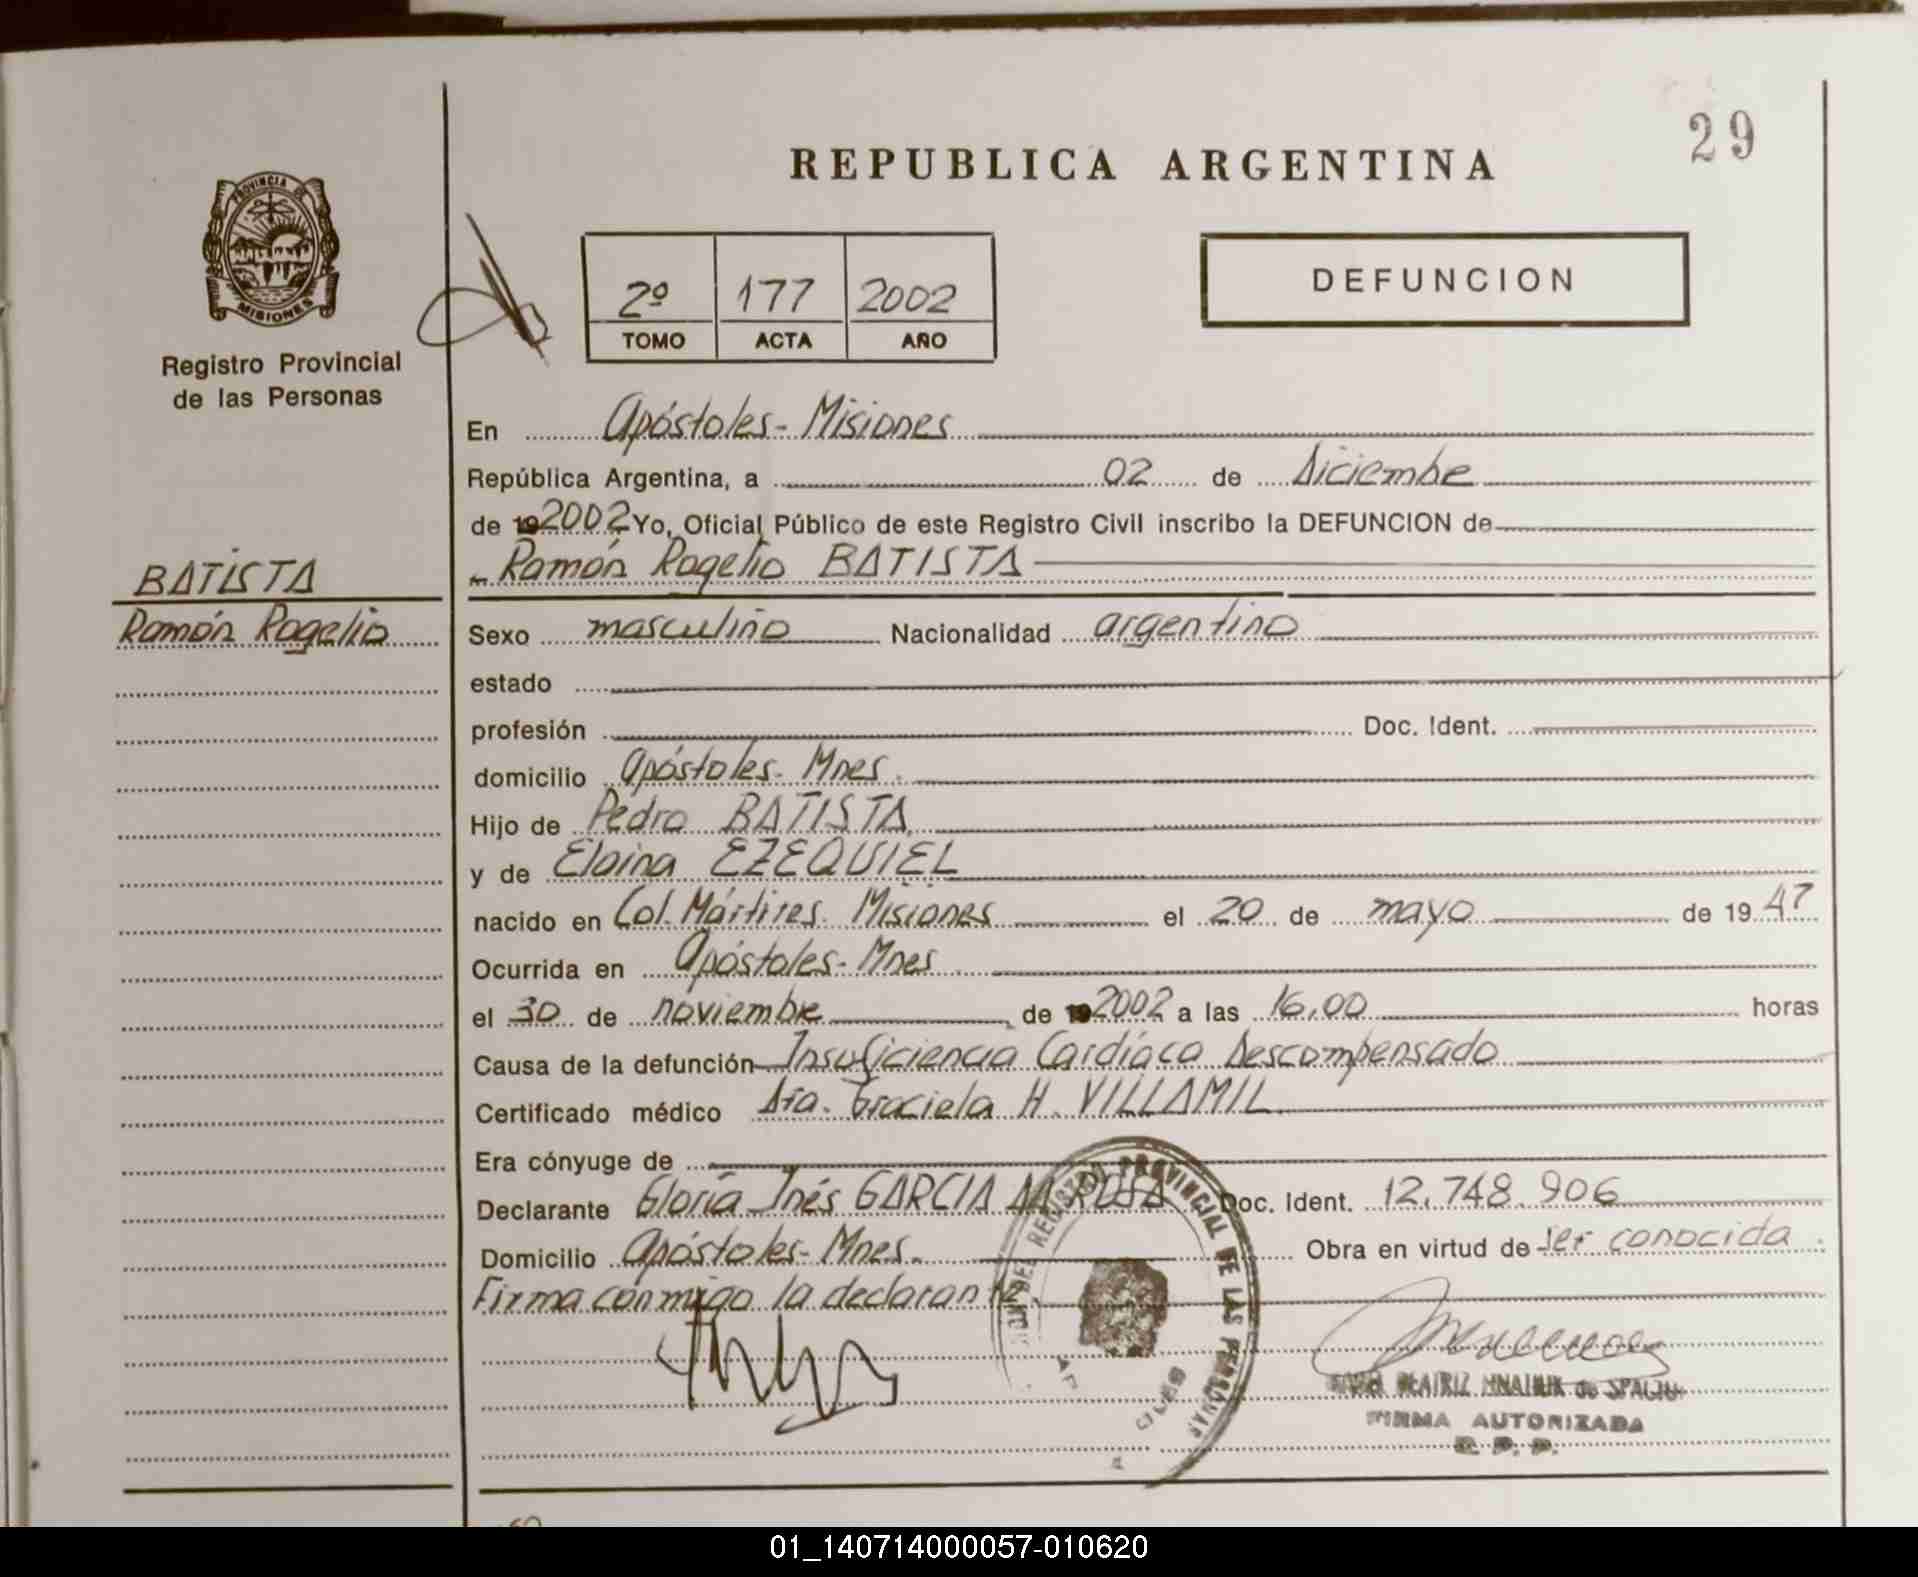 29
REPUBLICA ARGENTINA
PROVINCIA DE
MISIONES
Registro Provincial
de las Personas
2º 177 2002
TOMO ACTA AÑO
DEFUNCION
En Apóstoles - Misiones
República Argentina, a 02 de Diciembe
de 192002 Yo, Oficial Público de este Registro Civil inscribo la DEFUNCION de
Ramón Rogelio BATISTA
BATISTA
Ramón Rogelio
Sexo masculino Nacionalidad argentino
estado
profesión Doc. Ident.
domicilio Apóstoles. Mnes.
Hijo de Pedro BATISTA
y de Eloina EZEQUIEL
nacido en Col. Mártires. Misiones el 20 de mayo de 1947
Ocurrida en Apóstoles - Mnes
el 30 de noviembre de 192002 a las 16,00 horas
Causa de la defunción Insuficiencia Cardíaca Descompensado
Certificado médico Dra. Graciela H. VILLAMIL
Era cónyuge de
Declarante Gloria Inés GARCIA Doc. Ident. 12.748.906
Domicilio Apóstoles - Mnes. Obra en virtud de ser conocida
Firma conmigo la declarante
REGISTRO PROVINCIAL DE LAS PERSONAS
BEATRIZ de
FIRMA AUTORIZADA
R. P. P.
01_140714000057-010620